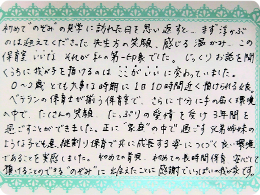 初めて"のぞみ"の見学に訪れた日を思い返すと、まず浮かぶ
のは迎えてくださった先生方の笑顔、感じる温かみ。この
保育室いいな それが私の第一印象でした。じっくりお話を聞
くうちに我が子を預けるのは ここがいい に変わっていました。
0〜2歳とても大事な時期に1日10時間近く預けられる上、
ベテランの保育士が揃う保育室で、さらに十分に手の届く環境
の中で、たくさんの笑顔 たっぷりの愛情を受け3年間を
過ごすことができました。正に"家庭"の中で過ごす兄弟姉妹の
ような子ども達、縦割り保育で共に成長する姿につくづく良い環境
であることを実感しました。初めての育児、初めての長時間保育 安心して
預けることのできる"のぞみ"に出会えたことに感謝でいっぱいの我が家です。